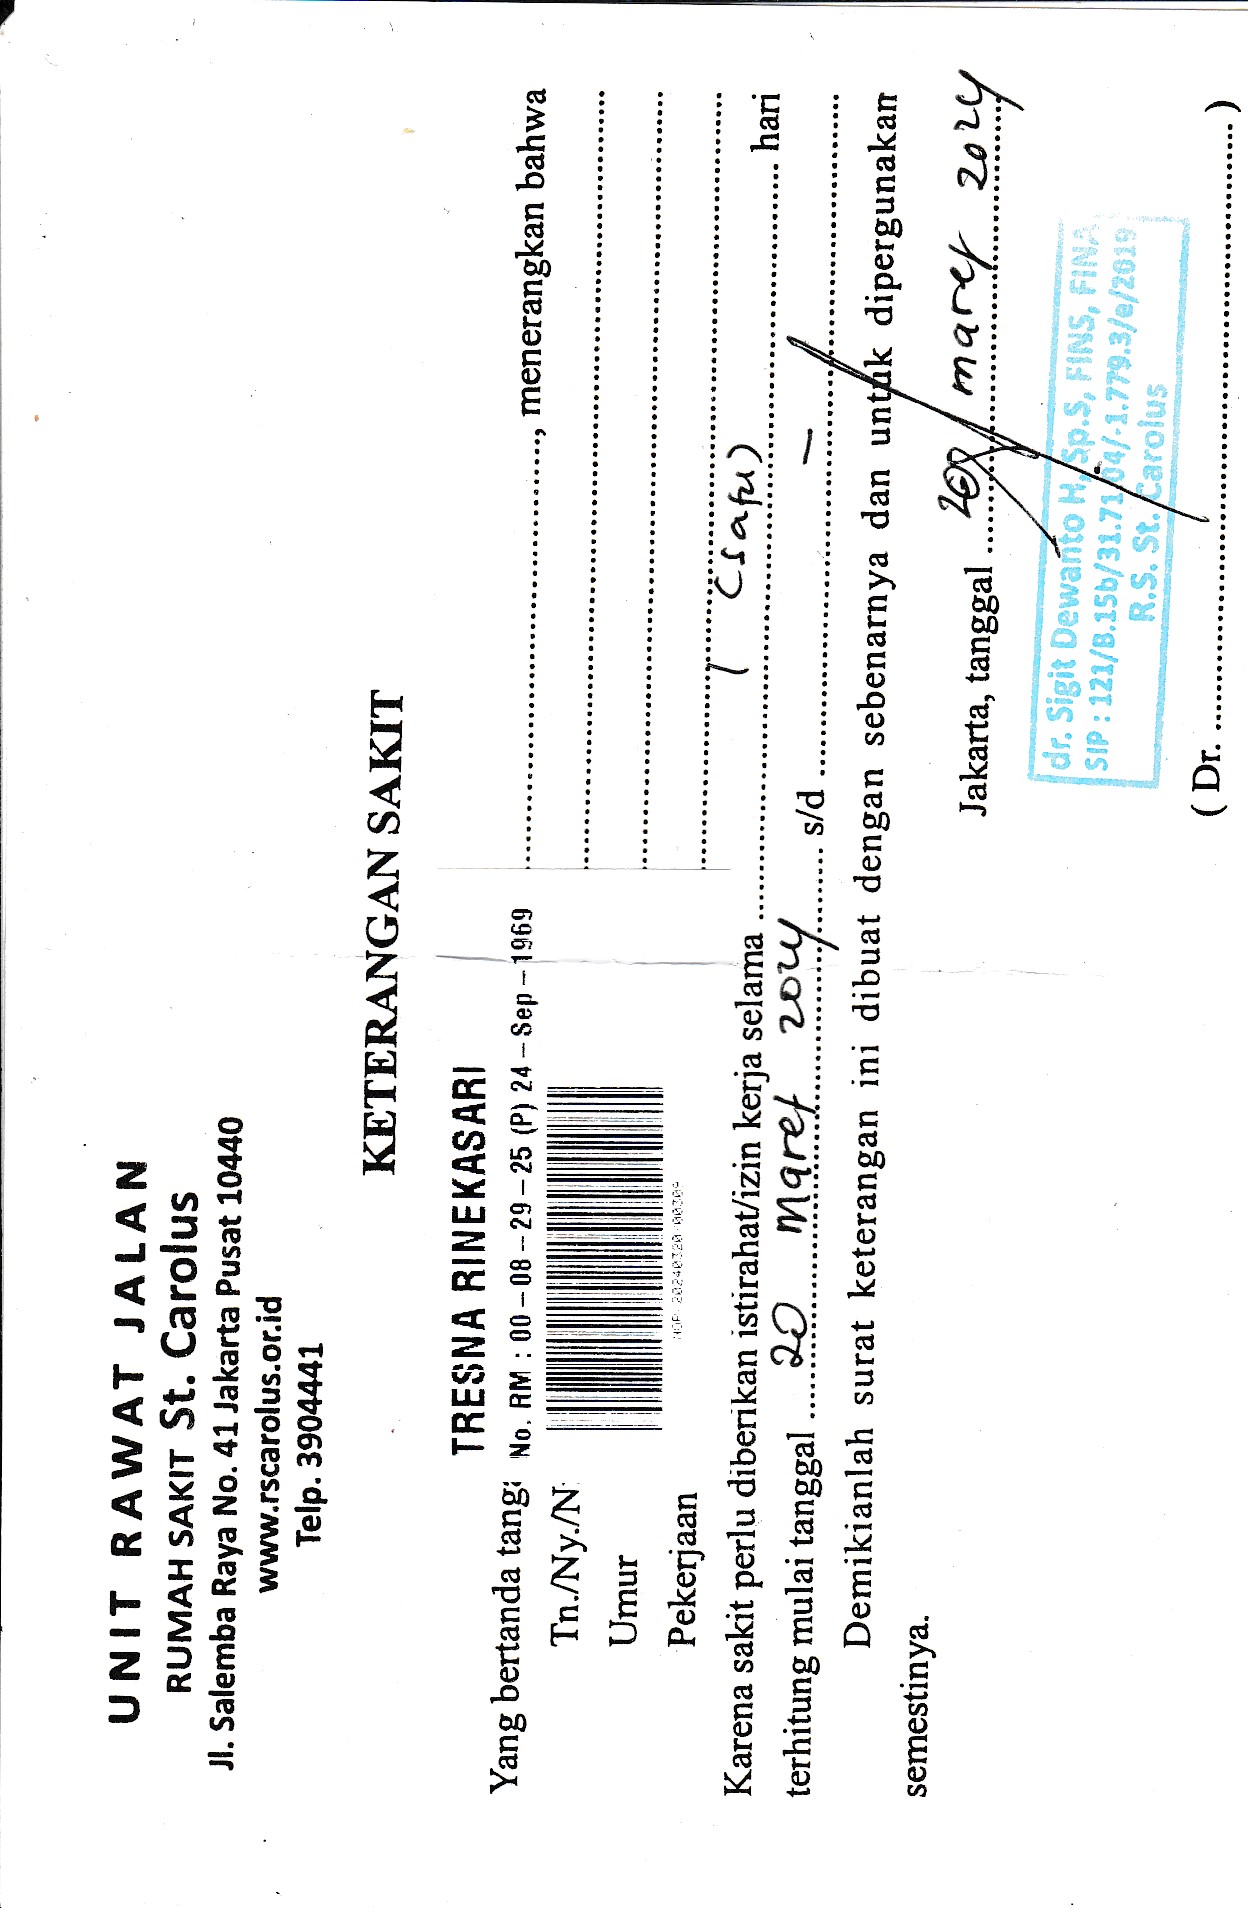 UNIT RAWAT JALAN
RUMAH SAKIT St. Carolus
Jl. Salemba Raya No. 41 Jakarta Pusat 10440
www.rscarolus.or.id
Telp. 3904441
KETERANGAN SAKIT
TRESNA RINEKASARI
No. RM : 00-08-29-25 (P) 24-Sep-1969
Yang bertanda tang ...................., menerangkan bahwa
Tn./Ny./N ....................
Umur ....................
Pekerjaan ....................
Karena sakit perlu diberikan istirahat/izin kerja selama .......... 1 (satu) .......... hari
terhitung mulai tanggal ...... 20 Maret 2024 ...... s/d .......... - ..........
Demikianlah surat keterangan ini dibuat dengan sebenarnya dan untuk dipergunakan
semestinya.
Jakarta, tanggal ... 20 maret 2024
dr. Sigit Dewanto H, Sp.S, FINS, FINA
SIP : 121/B.15b/31.71.04/-1.779.3/e/2019
R.S. St. Carolus
( Dr. .................... )